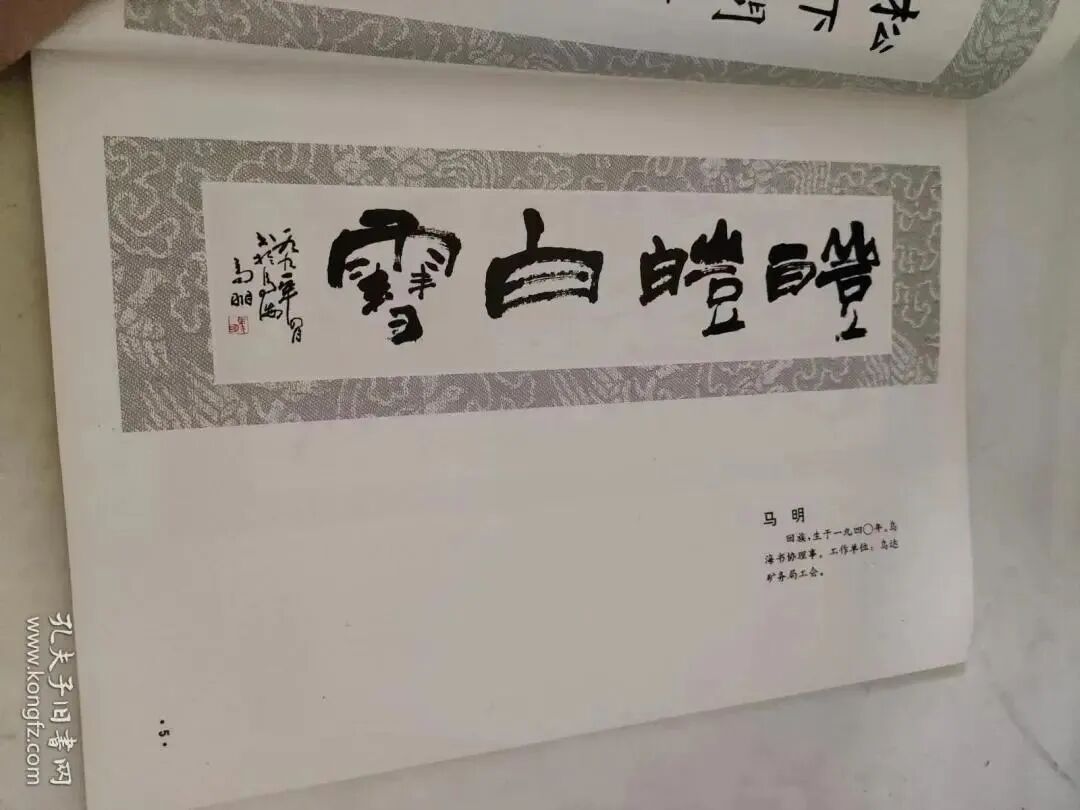 松下问
皚皚白雪
书于乌海
马明
马 明
回族,生于一九四〇年。乌
海书协理事。工作单位:乌达
矿务局工会。
·5·
孔夫子旧书网
www.kongfz.com